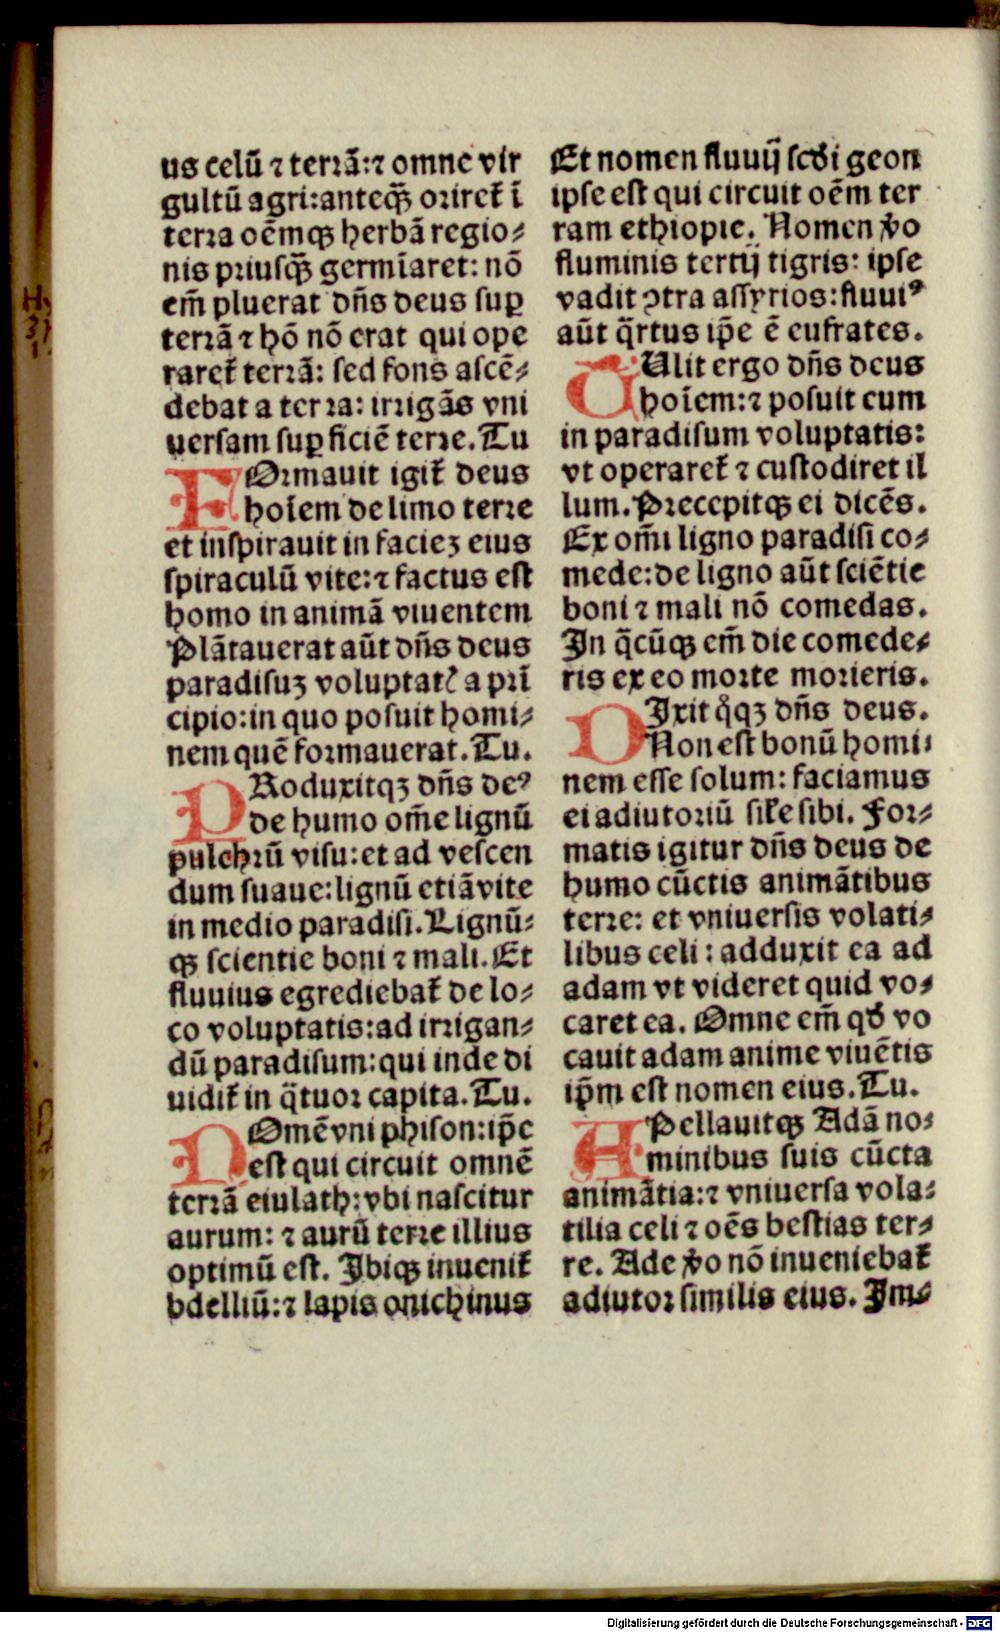 us celū ⁊ terrā:⁊ omne vir
gultū agri:anteqꝫ̄ oriret᷑ ī
terra oēmqꝫ herbā regio⸗
nis priusqꝫ̄ germīaret: nō
em̄ pluerat dn̄s deus suꝑ
terrā ⁊ hō nō erat qui ope
raret᷑ terrā: sed fons ascē⸗
debat a terra: irrigās vni
uersam suꝑficiē terre. Tu
FOrmauit igit᷑ deus
hoīem de limo terre
et inspirauit in faciez eius
spiraculū vite:⁊ factus est
homo in animā viuentem
Plātauerat aūt dn̄s deus
paradisuz voluptatꝭ a pri̅
cipio:in quo posuit homi⸗
nem quē formauerat. Tu.
PRoduxitqꝫ dn̄s deꝰ
de humo om̄e lignū
pulchrū visu:et ad vescen
dum suaue:lignū etiā vite
in medio paradisi. Lignū⸗
qꝫ scientie boni ⁊ mali. Et
fluuius egrediebat᷑ de lo⸗
co voluptatis:ad irrigan⸗
dū paradisum:qui inde di
uidit᷑ in q̄tuor capita. Tu.
NOmē vni phison:ip̄e
est qui circuit omnē
terrā eiulath:vbi nascitur
aurum: ⁊ aurū terre illius
optimū est. Ibiqꝫ inuenit᷑
bdelliū:⁊ lapis onichinus
Et nomen fluuij scd̄i geon
ipse est qui circuit oēm ter
ram ethiopie. Nomen v̄o
fluminis tertij tigris: ipse
vadit ꝯtra assyrios:fluuiꝰ
aūt q̄rtus ip̄e ē eufrates.
TUlit ergo dn̄s deus
hoīem:⁊ posuit eum
in paradisum voluptatis:
vt operaret᷑ ⁊ custodiret il
lum. Precepitqꝫ ei dicēs.
Ex om̄i ligno paradisi co⸗
mede:de ligno aūt sciētie
boni ⁊ mali nō comedas.
In q̄cūqꝫ em̄ die comede⸗
ris ex eo morte morieris.
DIxit qͦqꝫ dn̄s deus.
Non est bonū homi⸗
nem esse solum: faciamus
ei adiutoriū sil̄e sibi. For⸗
matis igitur dn̄s deus de
humo cūctis animātibus
terre: et vniuersis volati⸗
libus celi: adduxit ea ad
adam vt videret quid vo⸗
caret ea. Omne em̄ qd̄ vo
cauit adam anime viuētis
ip̄m est nomen eius. Tu.
APellauitqꝫ Adā no⸗
minibus suis cūcta
animātia:⁊ vniuersa vola⸗
tilia celi ⁊ oēs bestias ter⸗
re. Ade v̄o nō inueniebat᷑
adiutor similis eius. Im⸗
Digitalisierung gefördert durch die Deutsche Forschungsgemeinschaft - DFG